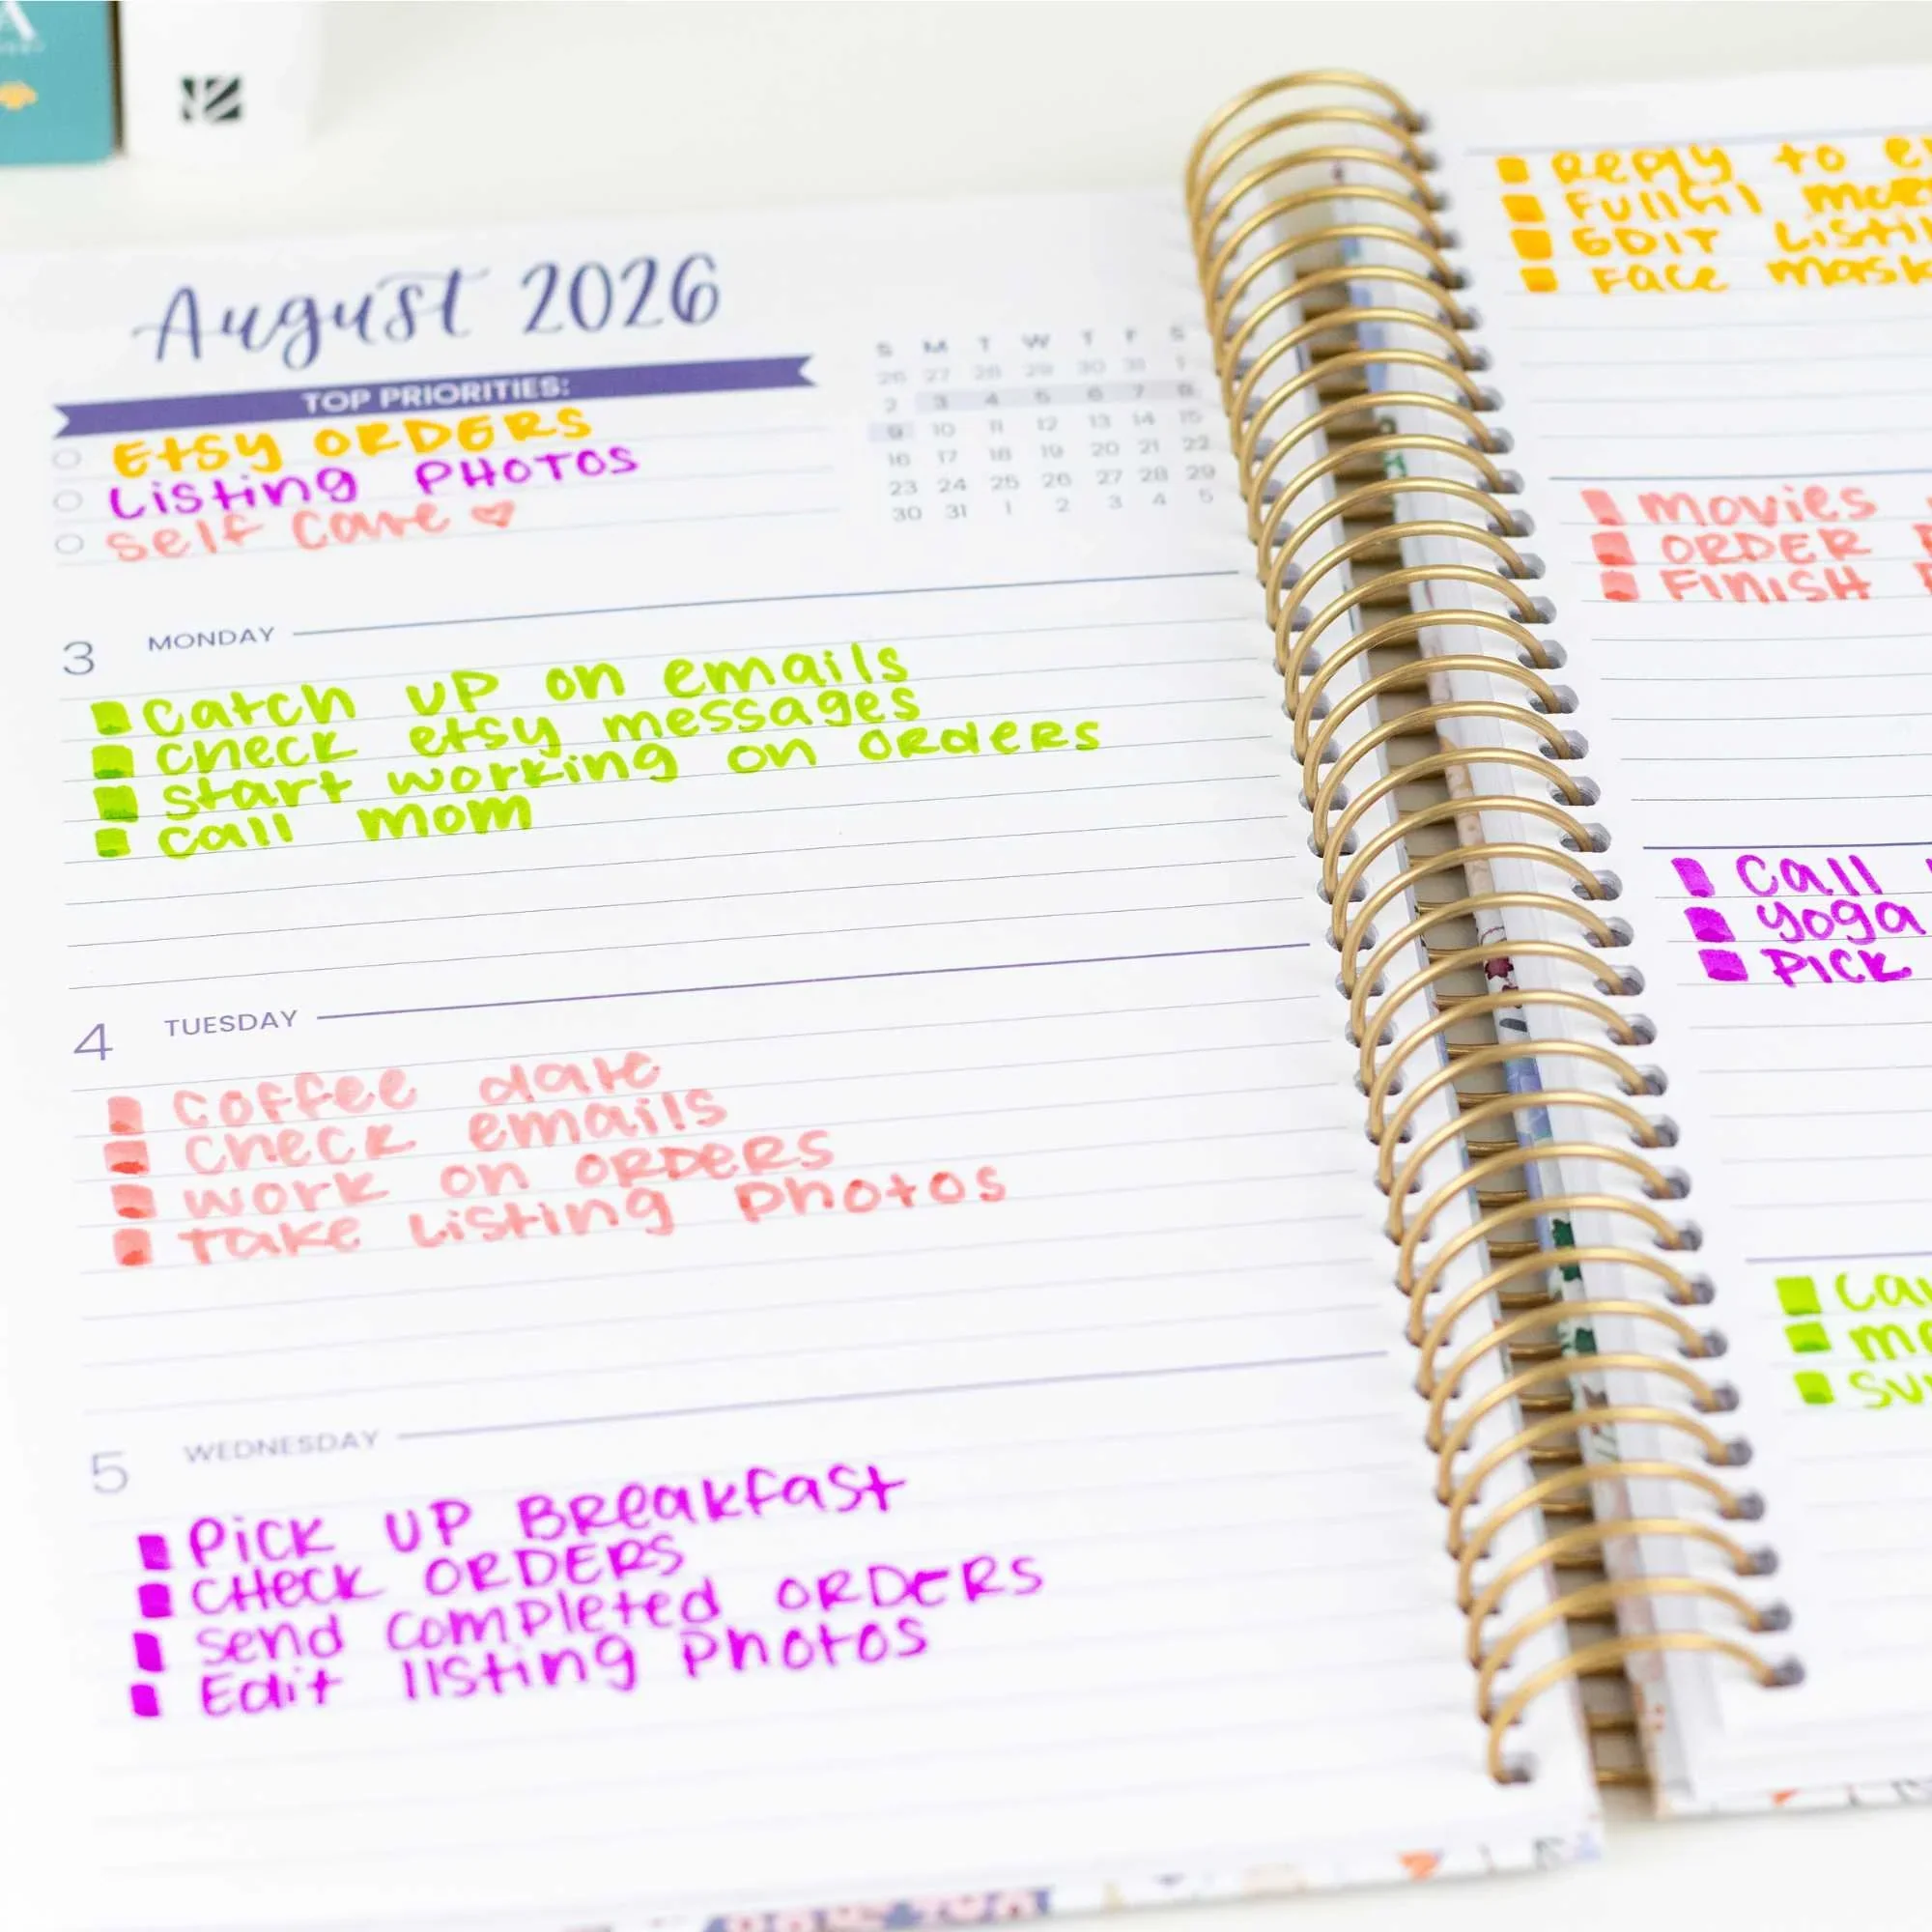 August 2026
TOP PRIORITIES:
Etsy ORDERS
Listing PHOTOS
Self Care
S M T W T F S
26 27 28 29 30 31 1
2 3 4 5 6 7 8
9 10 11 12 13 14 15
16 17 18 19 20 21 22
23 24 25 26 27 28 29
30 31 1 2 3 4 5
3 MONDAY
Catch UP on emails
check etsy messages
start working on orders
call mom
4 TUESDAY
Coffee date
Check emails
work on ORDERS
Take Listing Photos
5 WEDNESDAY
Pick UP Breakfast
CHeck ORDERS
Send Completed ORDERS
Edit listing Photos
Reply to
Fullfil
EDIT
Face mask
Movies
ORDER
FINISH
Call
Yoga
Pick